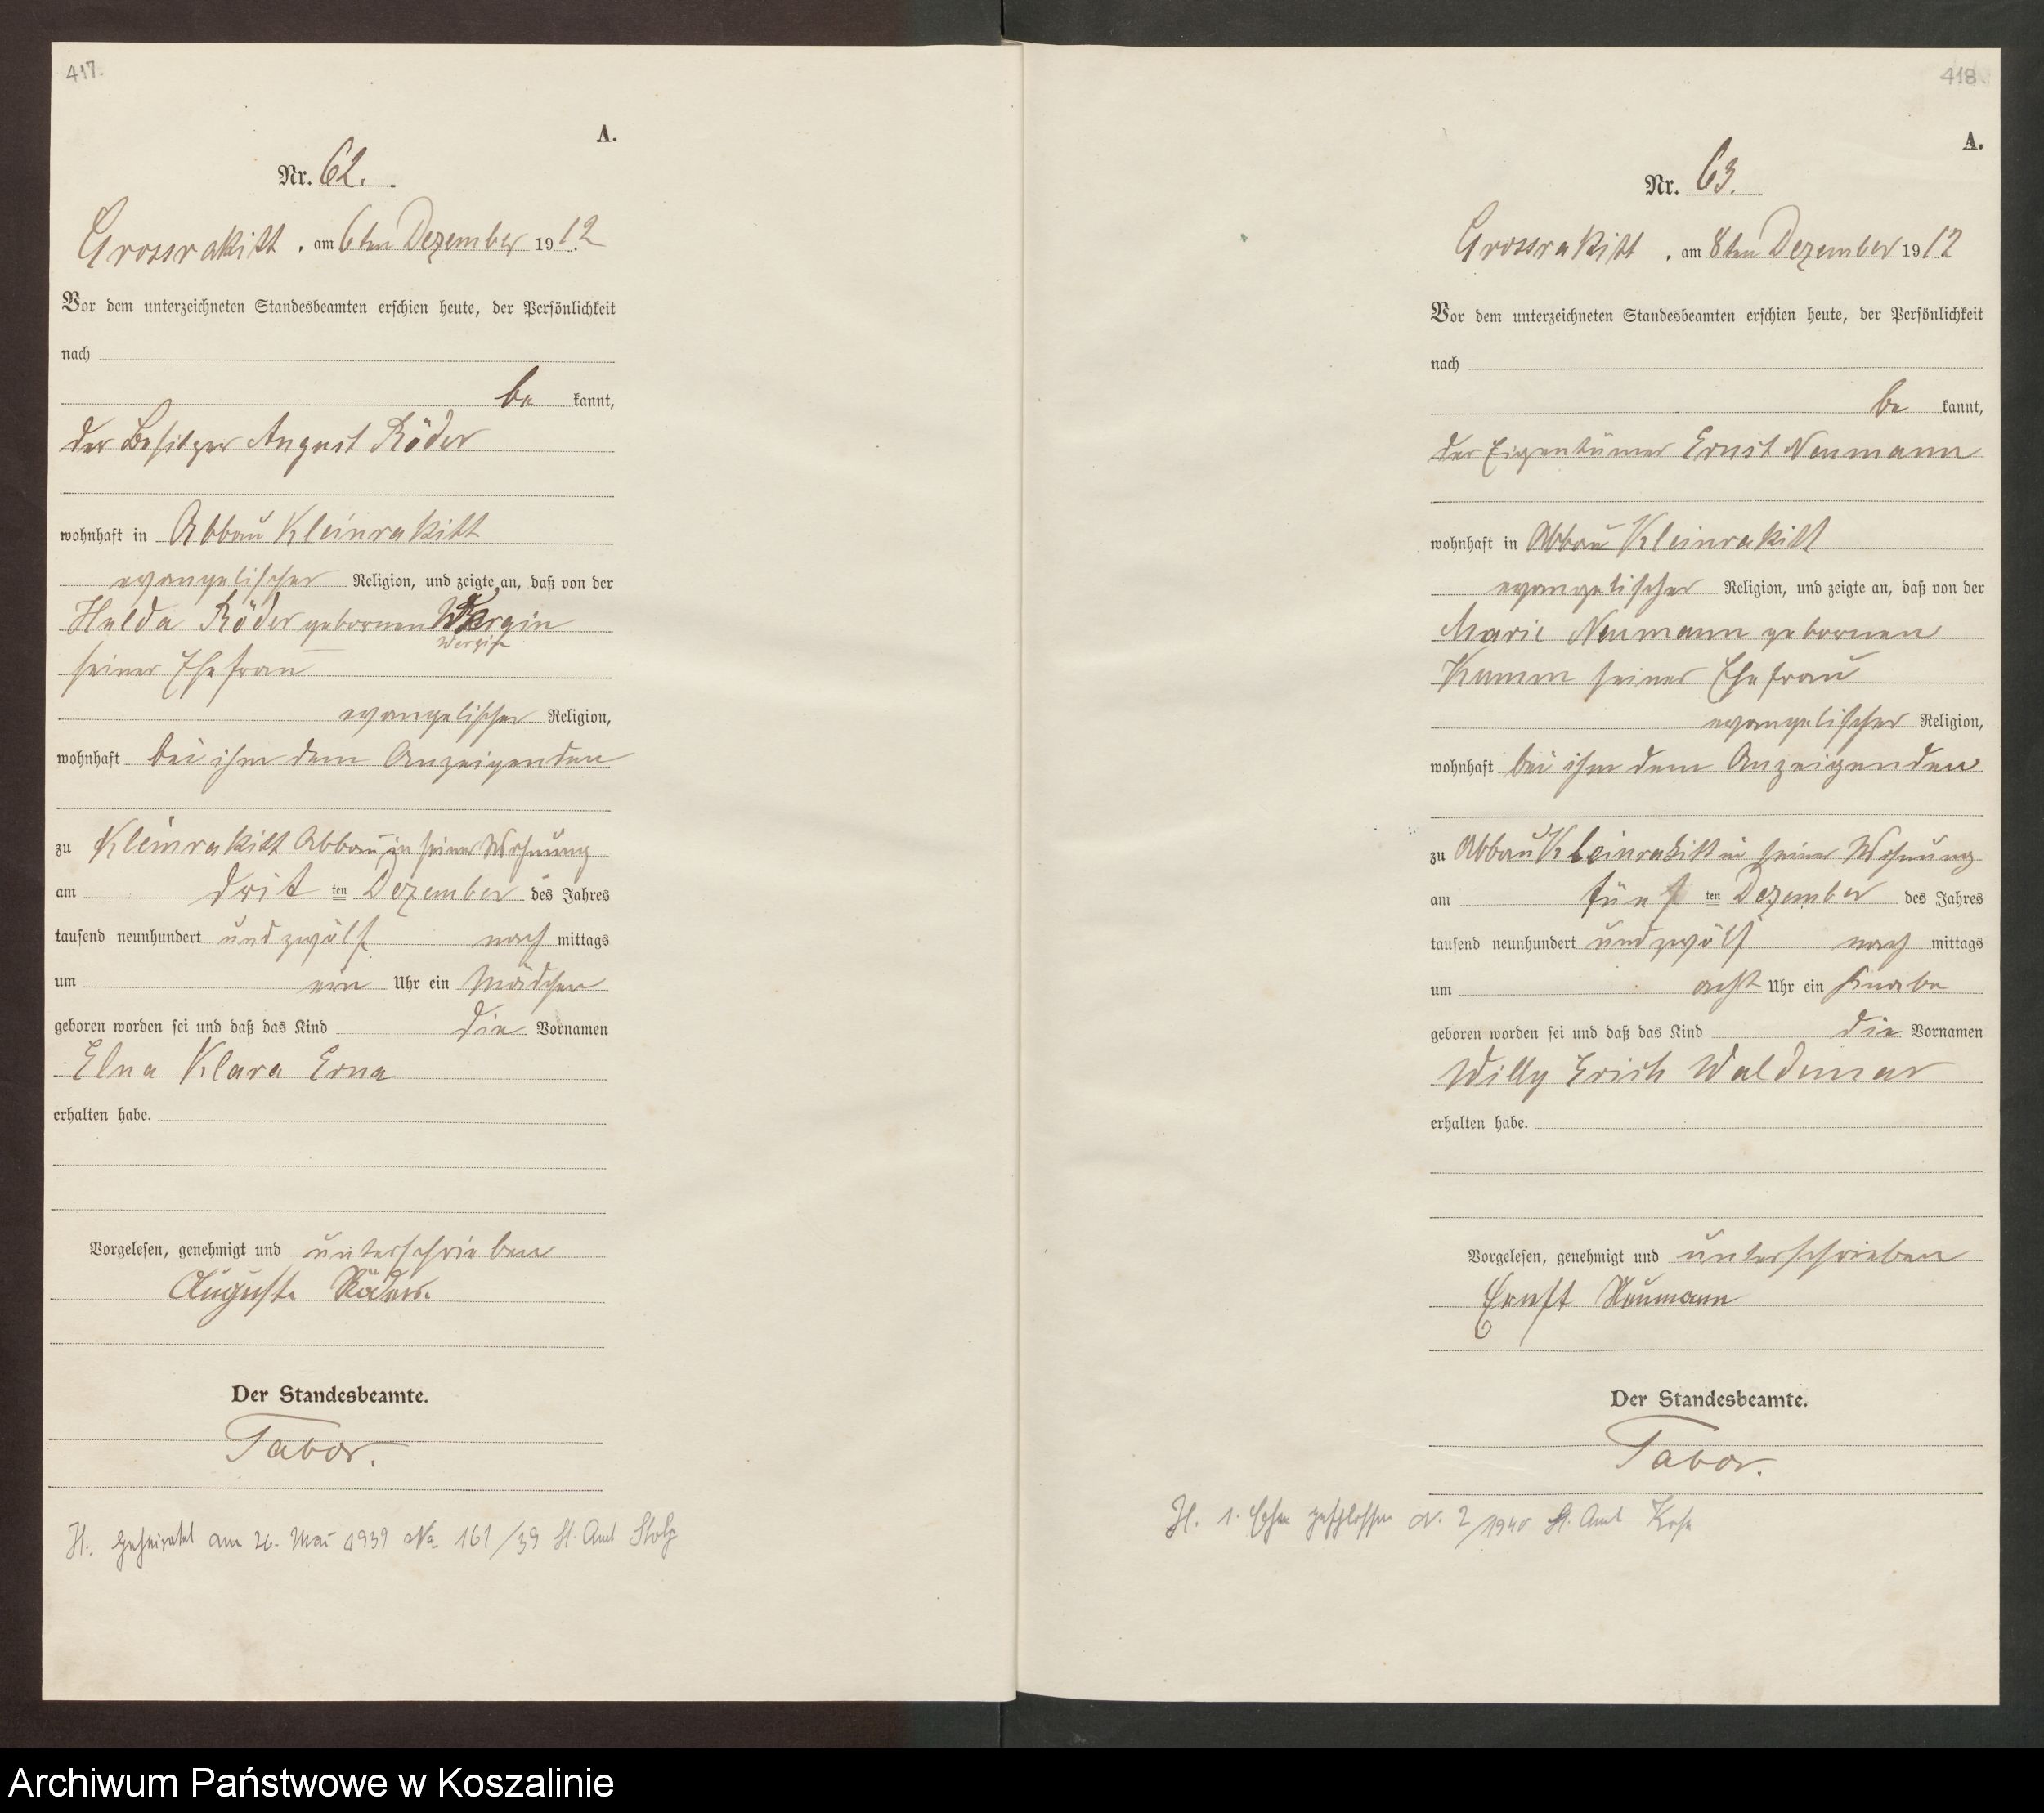 417.
A.
Nr. 62.
Grossrakitt, am 6ten Dezember 1912
Vor dem unterzeichneten Standesbeamten erschien heute, der Persönlichkeit
nach
be kannt,
der Besitzer August Röder
wohnhaft in Abbau Kleinrakitt
evangelischer Religion, und zeigte an, daß von der
Hulda Röder gebornen Wergin
Wergin
seiner Ehefrau
evangelischer Religion,
wohnhaft bei ihm dem Anzeigenden
zu Kleinrakitt Abbau in seiner Wohnung
am dritten Dezember des Jahres
tausend neunhundert und zwölf nach mittags
um ein Uhr ein Mädchen
geboren worden sei und daß das Kind die Vornamen
Elna Klara Erna
erhalten habe.
Vorgelesen, genehmigt und unterschrieben
August Röder.
Der Standesbeamte.
Tabor.
H. Geheiratet am 26. Mai 1939 No 161/39 St. Amt Stolp
418
A.
Nr. 63.
Grossrakitt, am 8ten Dezember 1912
Vor dem unterzeichneten Standesbeamten erschien heute, der Persönlichkeit
nach
be kannt,
der Eigentümer Ernst Neumann
wohnhaft in Abbau Kleinrakitt
evangelischer Religion, und zeigte an, daß von der
Marie Neumann gebornen
Kumm seiner Ehefrau
evangelischer Religion,
wohnhaft bei ihm dem Anzeigenden
zu Abbau Kleinrakitt in seiner Wohnung
am fünften Dezember des Jahres
tausend neunhundert und zwölf nach mittags
um acht Uhr ein Knabe
geboren worden sei und daß das Kind die Vornamen
Willy Erich Waldemar
erhalten habe.
Vorgelesen, genehmigt und unterschrieben
Ernst Neumann
Der Standesbeamte.
Tabor.
H. 1. Ehe geschlossen N. 2/1940 St. Amt
Archiwum Państwowe w Koszalinie